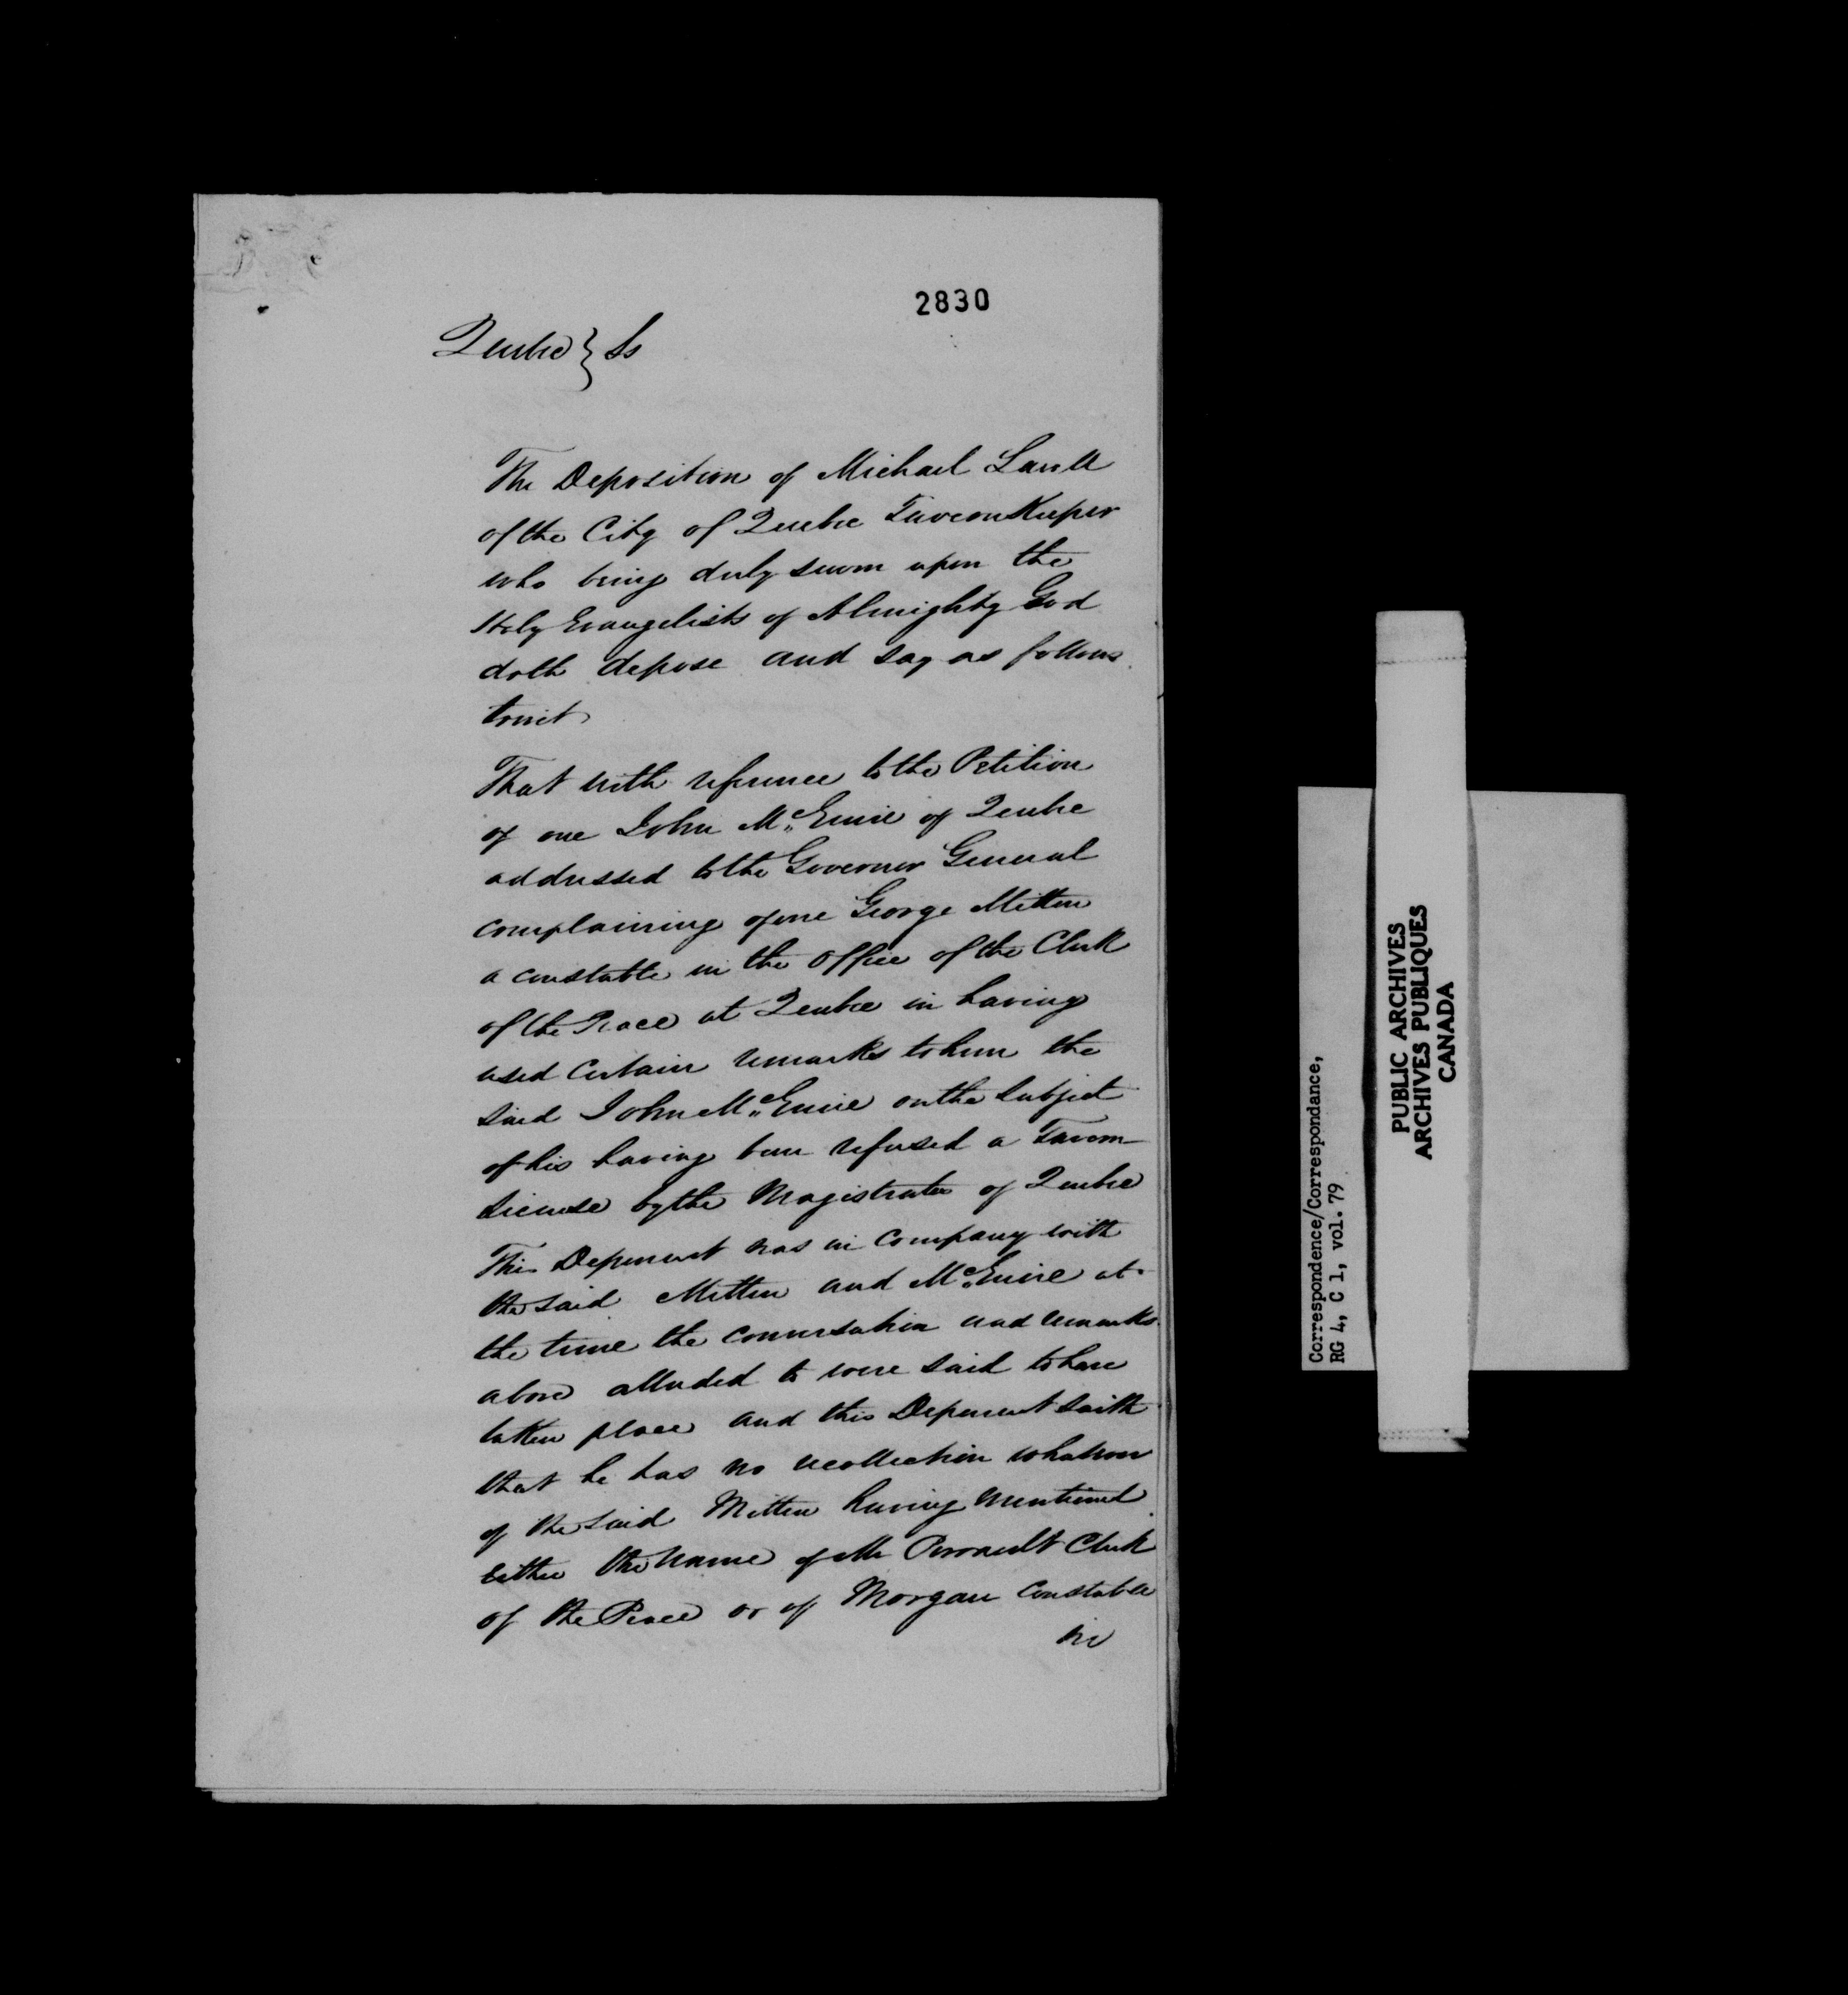 2830
Quebec } Ss
The Deposition of Michael
of the City of Quebec Tavern Keeper
who being duly sworn upon the
Holy Evangelists of Almighty God
doth depose and say as follows
towit
That with reference to the Petition
of one John McGuire of Quebec
addressed to the Governor General
complaining of one George Mitten
a constable in the Office of the Clerk
of the Peace at Quebec in having
used certain remarks to him the
said John McGuire on the subject
of his having been refused a Tavern
License by the Magistrates of Quebec
This Deponent was in company with
the said Mitten and McGuire at
the time the conversation and remarks
above alluded to were said to have
taken place and this Deponent saith
that he has no recollection whatever
of the said Mitten having mentioned
either the name of Mr Perrault Clerk
of the Peace or of Morgan Constable
in
Correspondence/Correspondance,
RG 4, C 1, vol. 79
PUBLIC ARCHIVES
ARCHIVES PUBLIQUES
CANADA